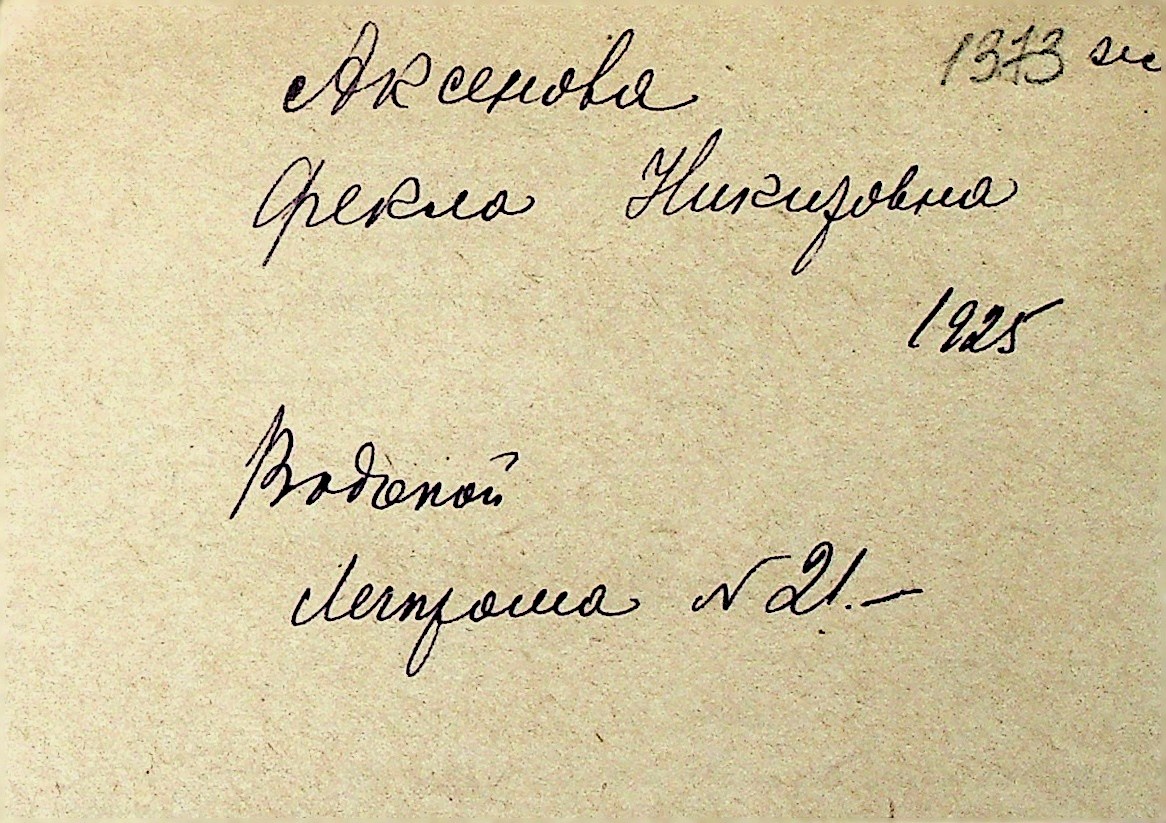 Аксенова 1373
Фекла Никировна
1925
Водопой
Легпрома № 21.—